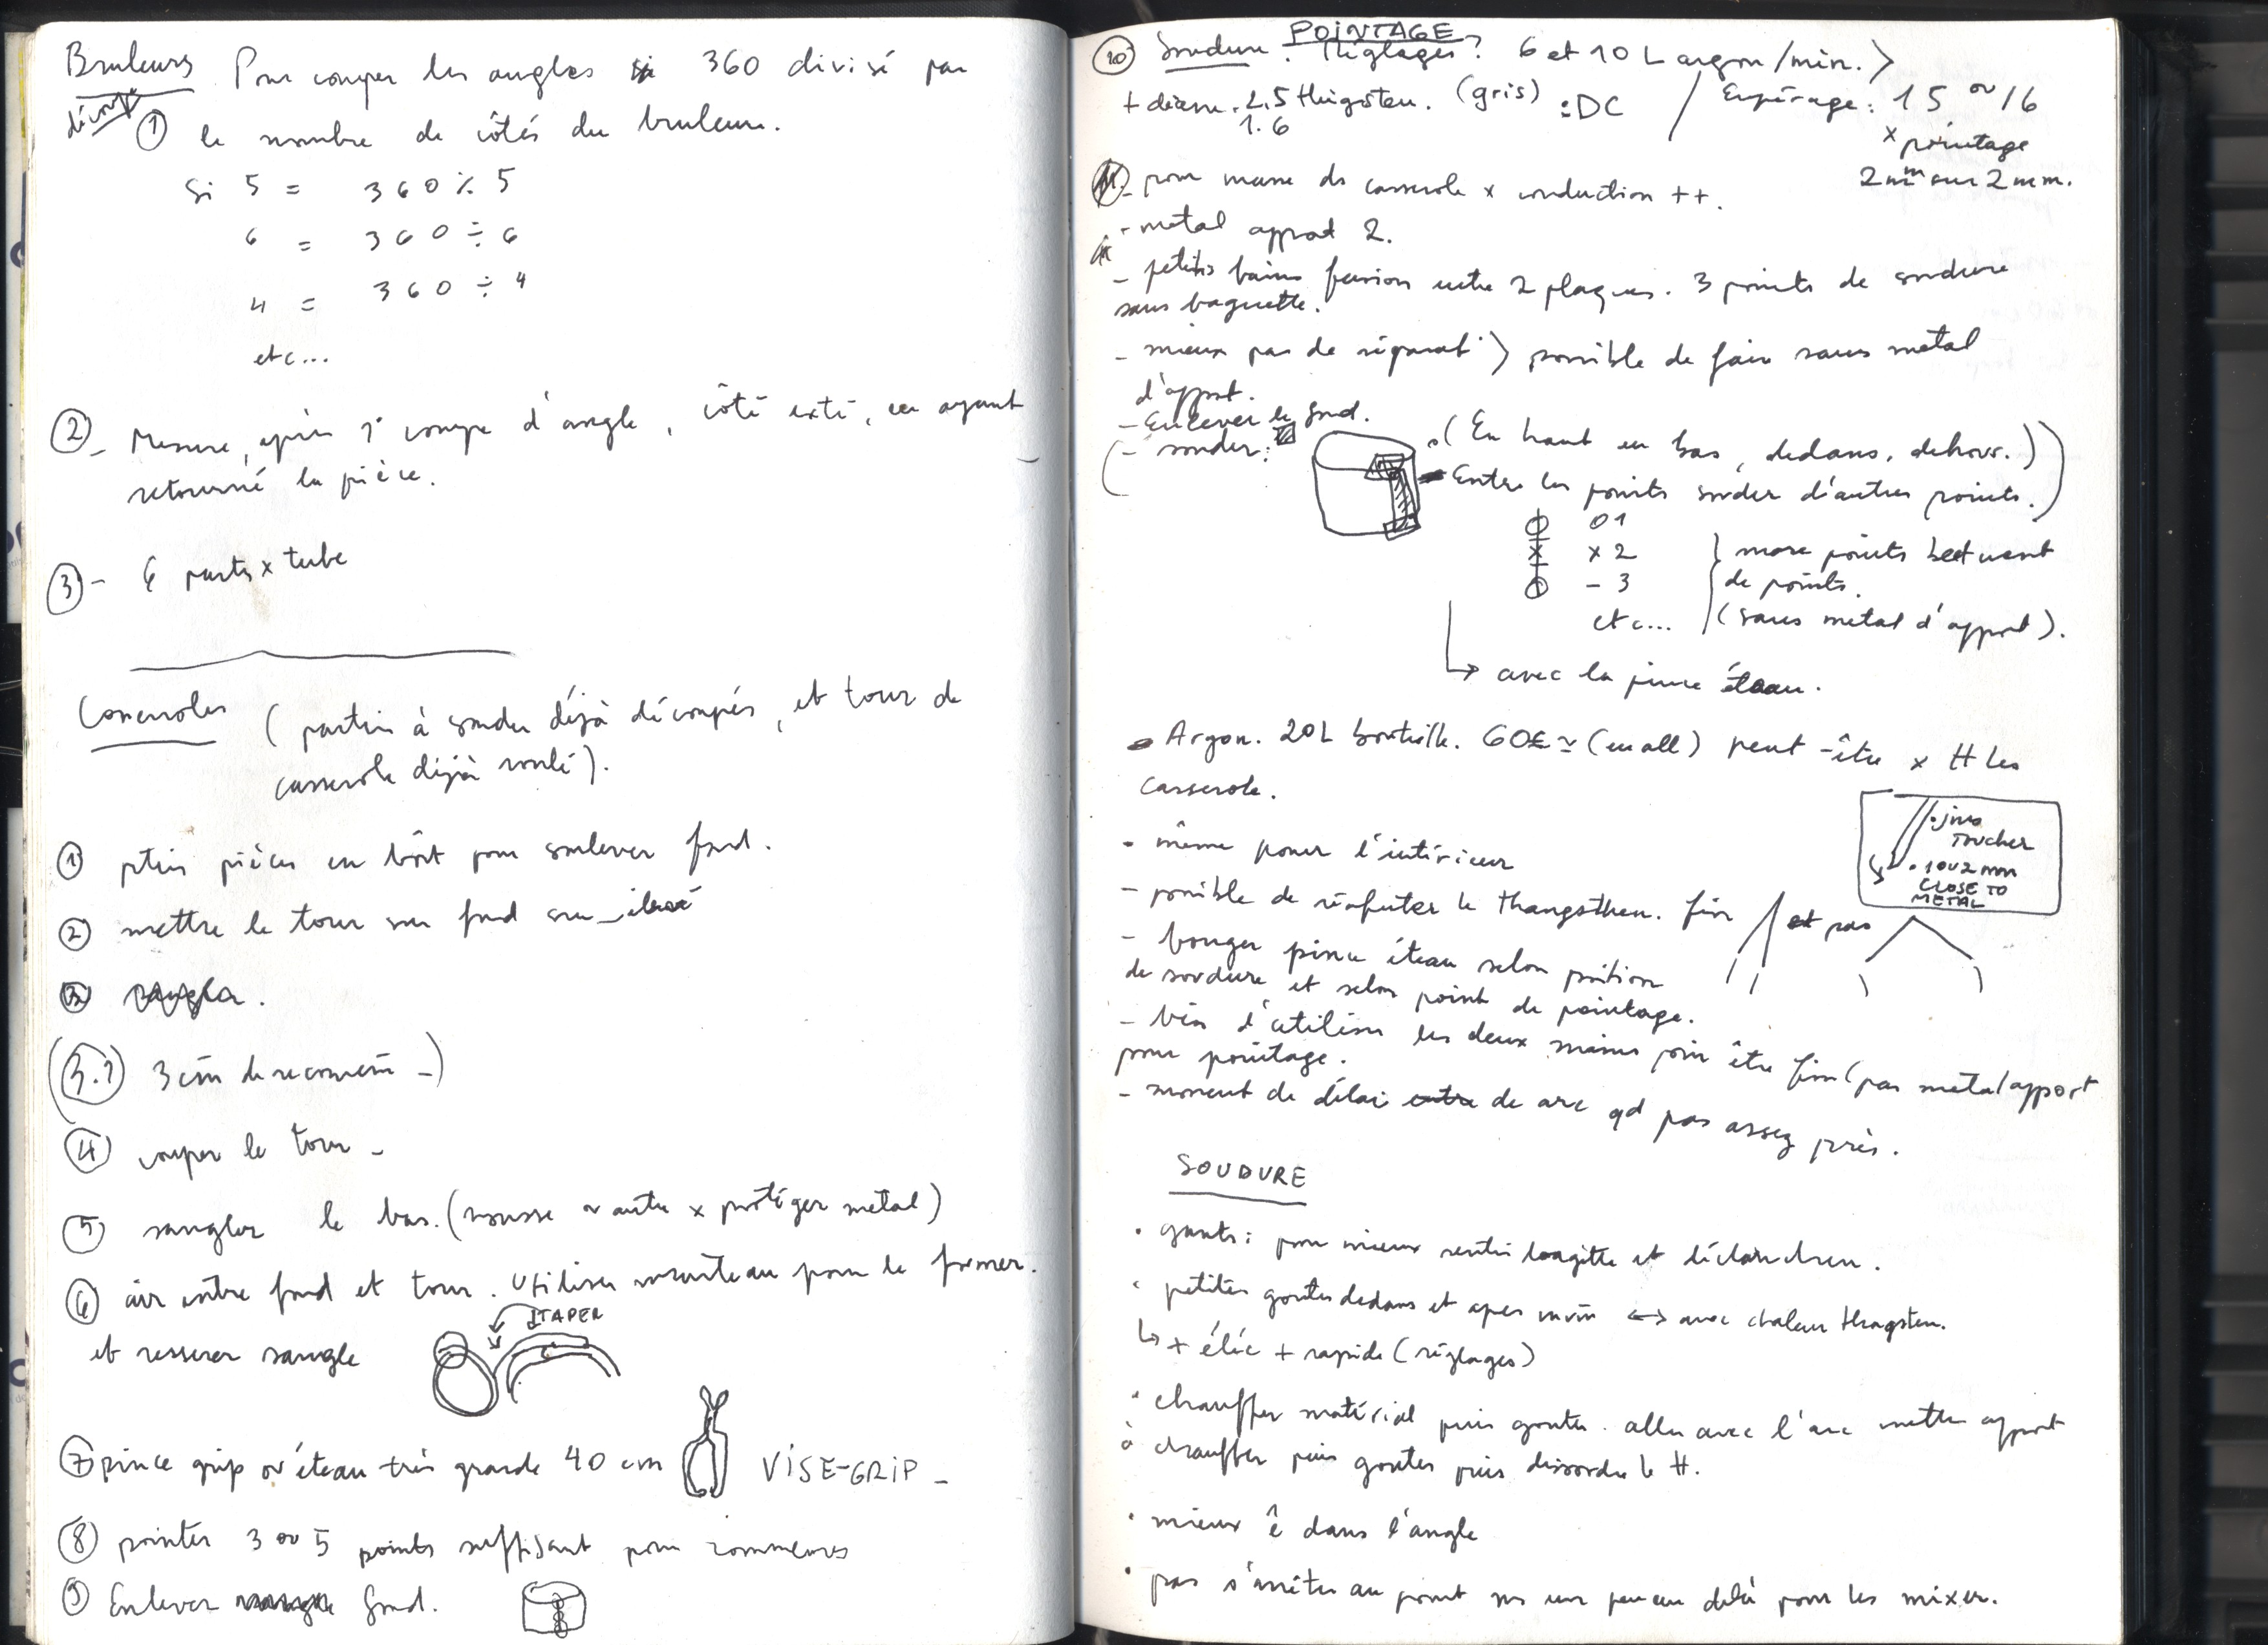 Bruleurs Pour couper les angles 360 divisé par
découpe
① le nombre de côtés du bruleur.
Si 5 = 360 ÷ 5
6 = 360 ÷ 6
4 = 360 ÷ 4
etc...
② - Mesure, après 1° coupe d'angle, côté exté, en ayant
retourné la pièce.
③ - 6 parts x tube
Casseroles (parties à souder déjà découpés, et tour de
casserole déjà roulé).
① ptes pièces en bois pour soulever fond.
② mettre le tour sur fond
③ sangler.
(3.?) 3 cm de recouvrem -)
④ couper le tour -
⑤ sangler le bas. (mousse ou autre x protéger métal)
⑥ air entre fond et tour. Utiliser marteau pour le former.
TAPER
et resserer sangle
⑦ pince grip ou étau très grande 40 cm VISE-GRIP -
⑧ pointer 3 ou 5 points suffisant pour commencer
⑨ Enlever fond.
POINTAGE
⑩ Soudure. Réglages? 6 et 10 L argon/min. >
+ diam. 2.5 thugsten. (gris) : DC / Empérage: 15 ou 16
1.6
x pointage
2 mm sur 2 mm.
⑪ - pour masse ds casserole x conduction ++.
- metal apport 2.
- petits bains fusion entre 2 plaques. 3 points de soudure
sans baguette.
- mieux pas de séparat° > possible de faire sans métal
d'apport.
- Enlever le fond.
(- souder: (En haut en bas, dedans, dehors.)
- Entre les points souder d'autres points.)
01
x 2 } more points
- 3 de points.
etc... (sans metal d'apport).
↳ avec la pince étau.
- Argon. 20L bouteille. 60€ ≃ (small) peut-être x tt les
casserole.
• jms
TOUCHER
• 1 ou 2 mm
CLOSE TO
METAL
- même pour l'intérieur
- possible de réafuter le thangsthen. fin et pas
- bouger pince étau selon position
de soudure et selon point de pointage.
- bien d'utiliser les deux mains pour être fin (pas metal apport
pour pointage.
- moment de délai entre de arc qd pas assez près.
SOUDURE
• gants: pour mieux sentir
• petites goutes dedans et apes ↔ avec chaleur thragsten.
↳ + éléc + rapide (réglages)
• chauffer matérial puis goutes. aller avec l'arc mettre apport
à chauffer puis goutes puis dissoudre le tt.
• mieux ê dans l'angle
• pas s'arrêter au point ms un peu au delà pour les mixer.